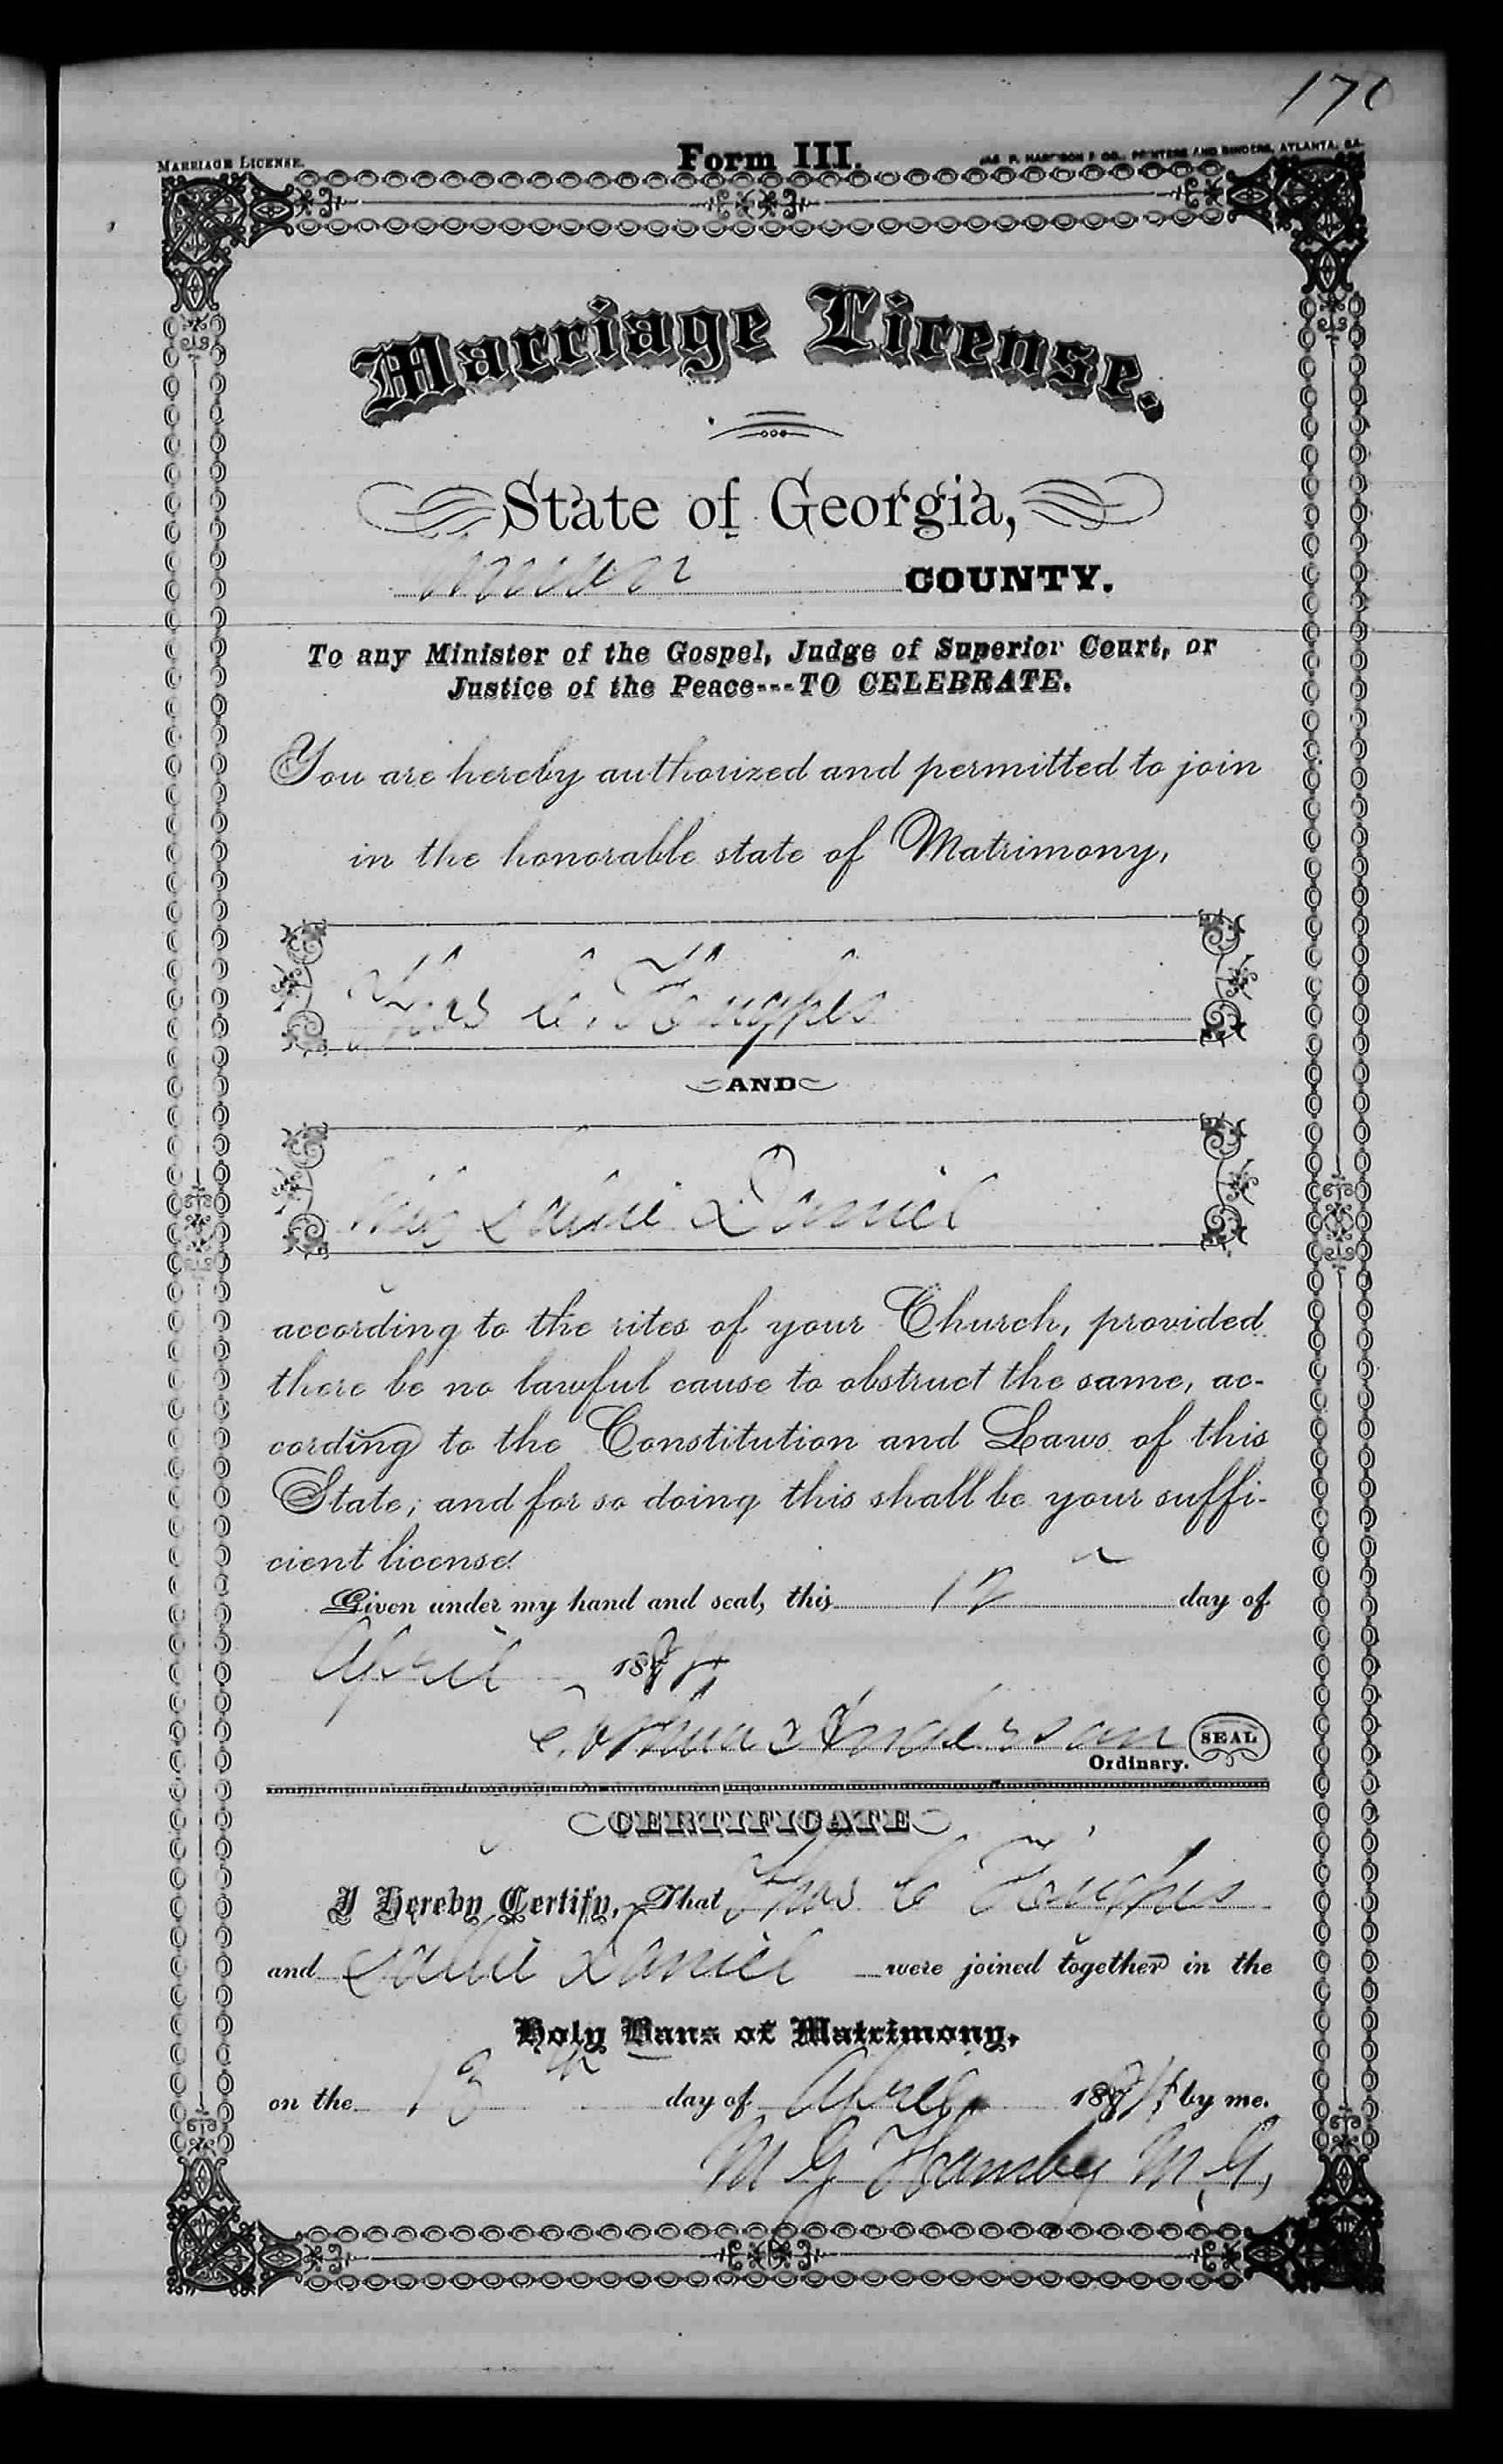 170
MARRIAGE LICENSE.
Form III.
JAS P. HARRISON & CO., PRINTERS AND BINDERS, ATLANTA, GA.
Marriage License.
State of Georgia,
COUNTY.
To any Minister of the Gospel, Judge of Superior Court, or
Justice of the Peace---TO CELEBRATE.
You are hereby authorized and permitted to join
in the honorable state of Matrimony,
Thos C. Hughes
AND
Miss Sallie Daniel
according to the rites of your Church, provided
there be no lawful cause to obstruct the same, ac-
cording to the Constitution and Laws of this
State; and for so doing this shall be your suffi-
cient license.
Given under my hand and seal, this 12 day of
April 1884
Anderson SEAL
Ordinary.
CERTIFICATE
I Hereby Certify, That Thos C Hughes
and Sallie Daniel were joined together in the
Holy Bans of Matrimony.
on the 13th day of April 1884, by me.
M G Hamby M. G,